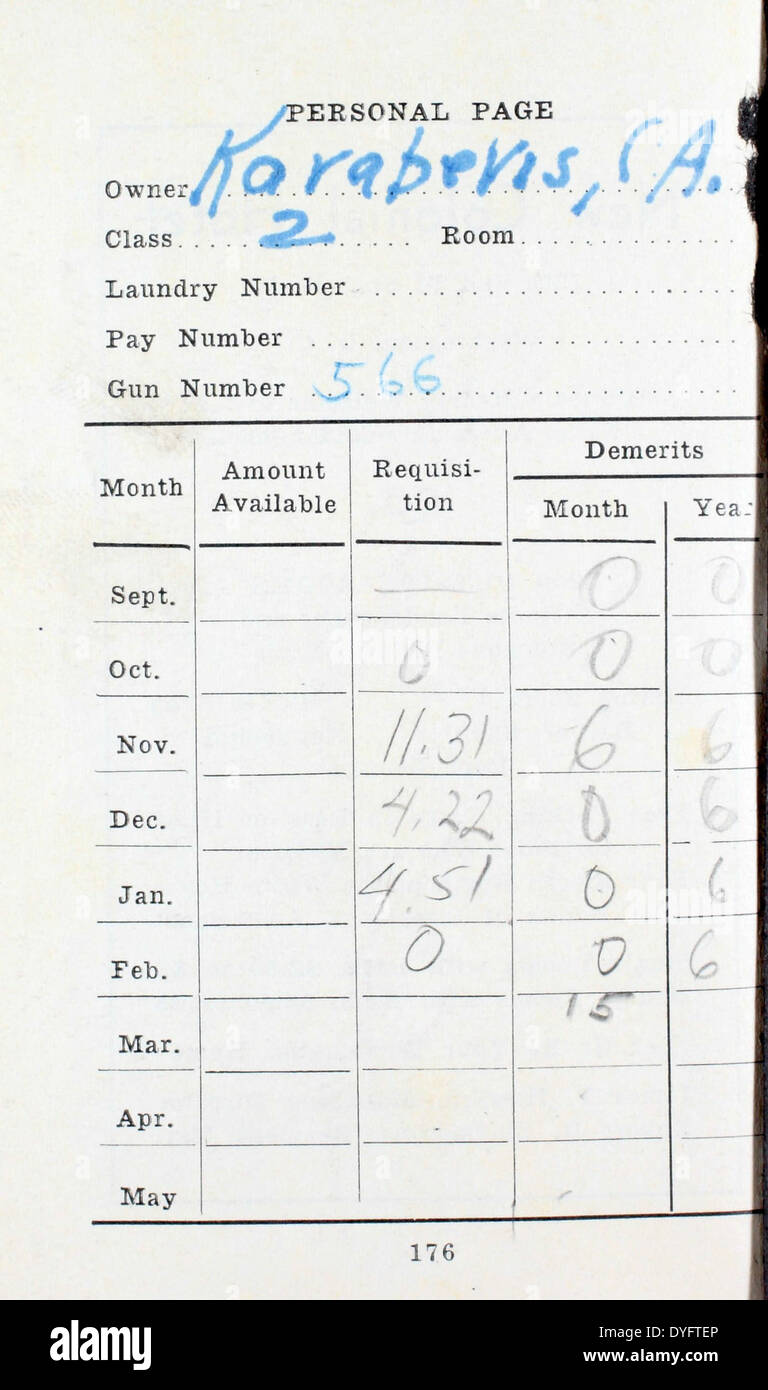 PERSONAL PAGE
Owner Karabevis, CA.
Class 2 Room
Laundry Number
Pay Number
Gun Number 566
Month Amount Available Requisi-tion Demerits
Month Year
Sept. — 0 0
Oct. 0 0 0
Nov. 11.31 6 6
Dec. 4.22 0 6
Jan. 4.51 0 6
Feb. 0 0 6
Mar. 15
Apr.
May
176
alamy
Image ID: DYFTEP
www.alamy.com